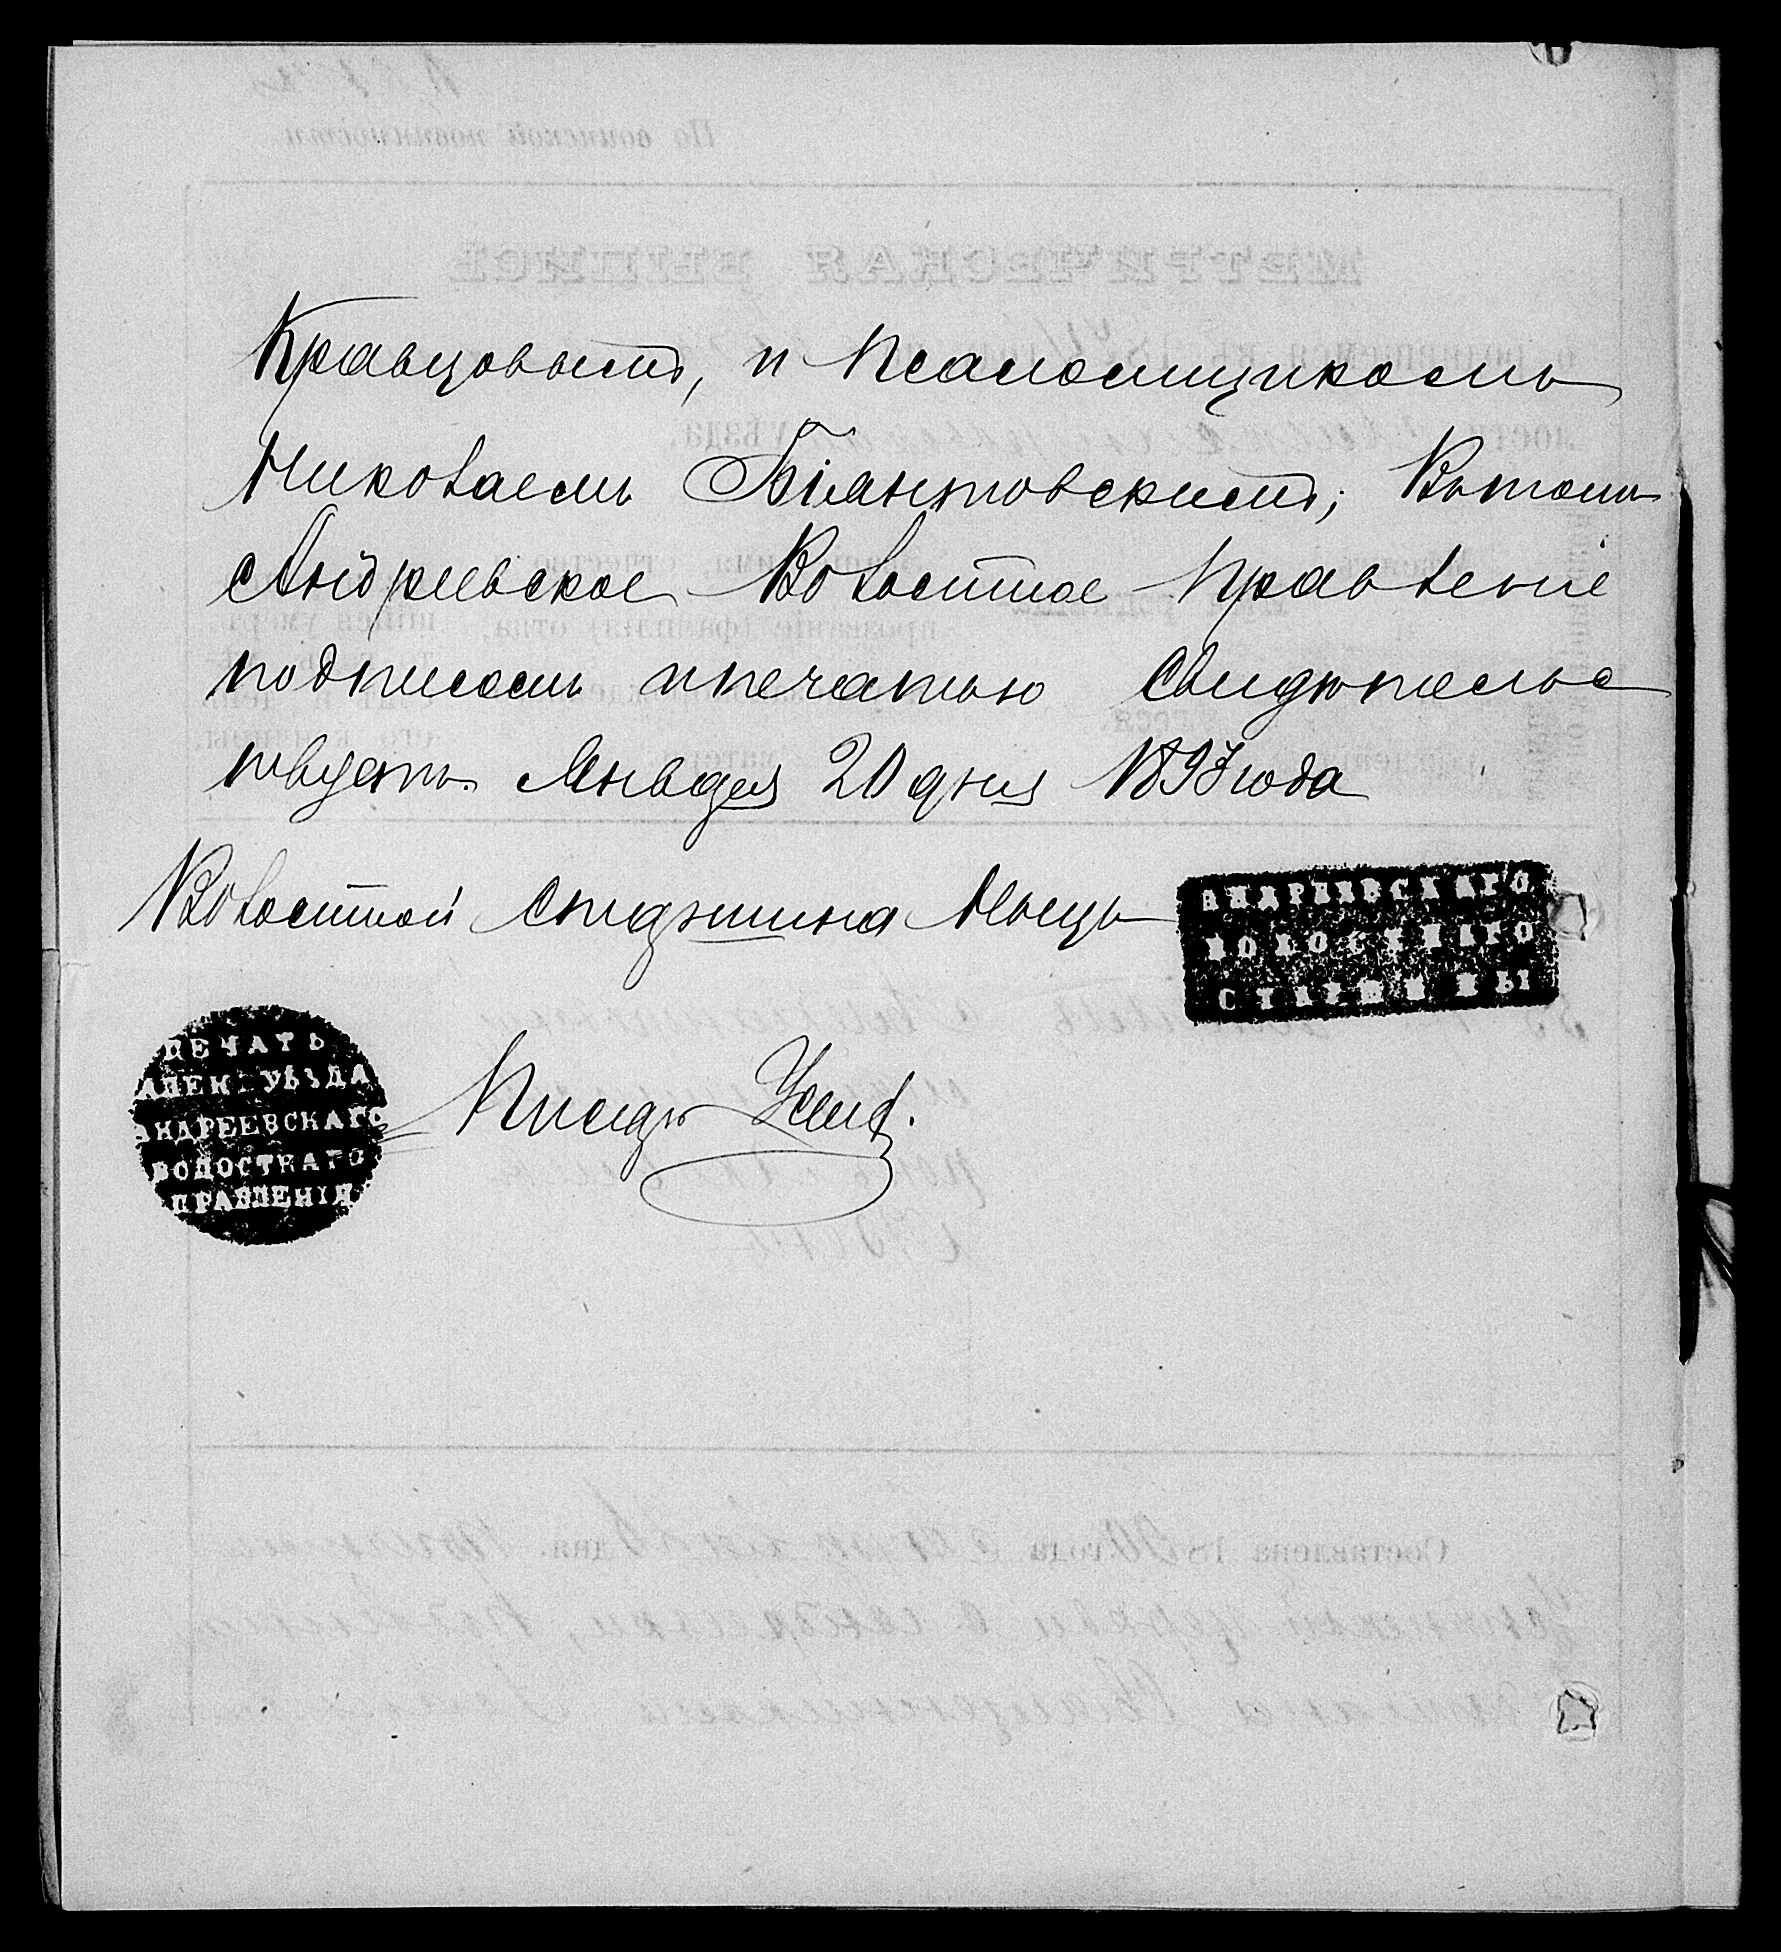 Кравцовымъ, и Псаломщикомъ
Николаемъ Біантовскимъ; Вътомъ
Андреевское Волостное Правленіе
подписомъ ипечатью Свидѣтельс
твуетъ. Января 20 дня 1897 года
Волостной Старшина
АНДРЕЕВСКАГО
ВОЛОСТНАГО
СТАРШИНЫ
ПЕЧАТЬ
АЛЕК УѢЗДА
АНДРЕЕВСКАГО
ВОЛОСТНАГО
ПРАВЛЕНІЯ
Писарь